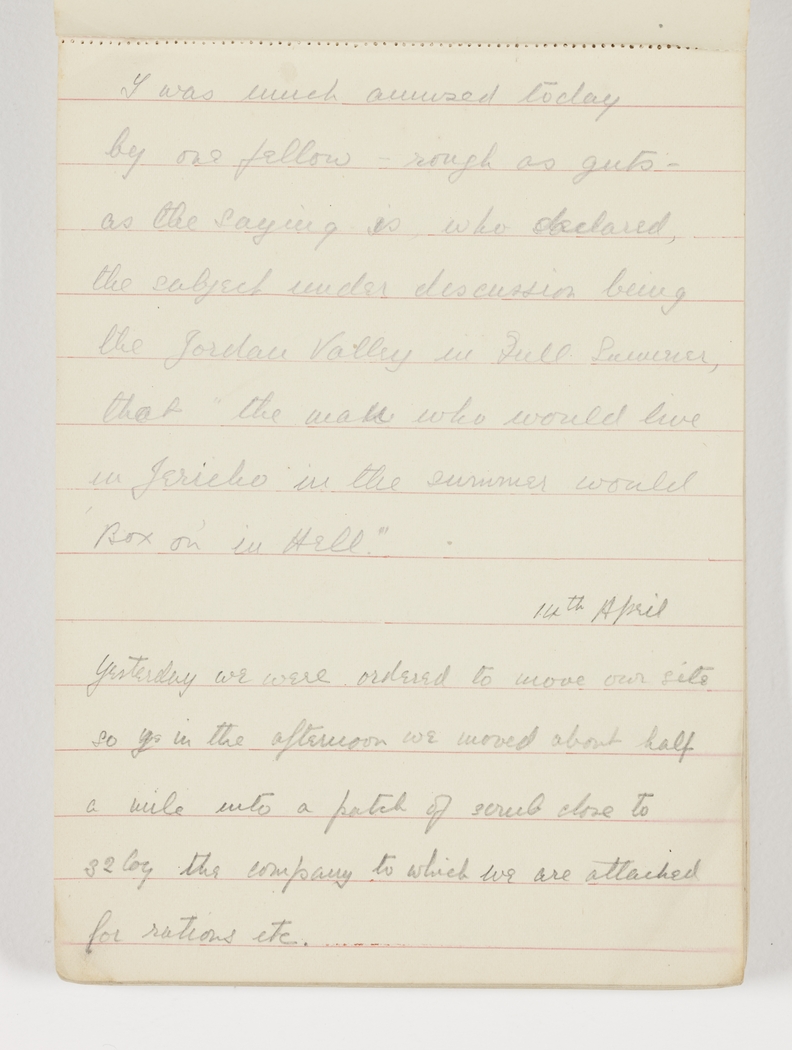 I was much amused today
by one fellow – rough as guts –
as the saying is, who declared,
the subject under discussion being
the Jordan Valley in Full Summer,
that "the man who would live
in Jericho in the summer would
'Box on' in Hell."
14th April
Yesterday we were ordered to move our site
so in the afternoon we moved about half
a mile into a patch of scrub close to
32 Coy the company to which we are attached
for rations etc.